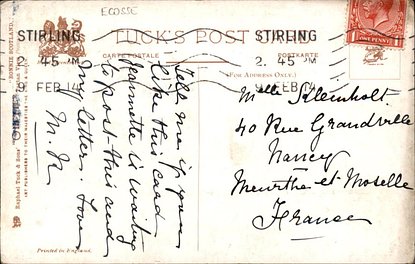 ECOSSE
STIRLING
2. 45 PM
9 FEB 14
TUCK'S POST
CARTE POSTALE
POSTKARTE
(FOR ADDRESS ONLY.)
STIRLING
2. 45 PM
9 FEB 14
ONE PENNY
"BONNIE SCOTLAND."
Raphael Tuck & Sons'
Tell me if you
like this card
Jeannette is waiting
to post this and
my letter. Love
M. N
Printed in England.
Melle Kleinholt.
40 Rue Grandville
Nancy
Meurthe et Moselle
France